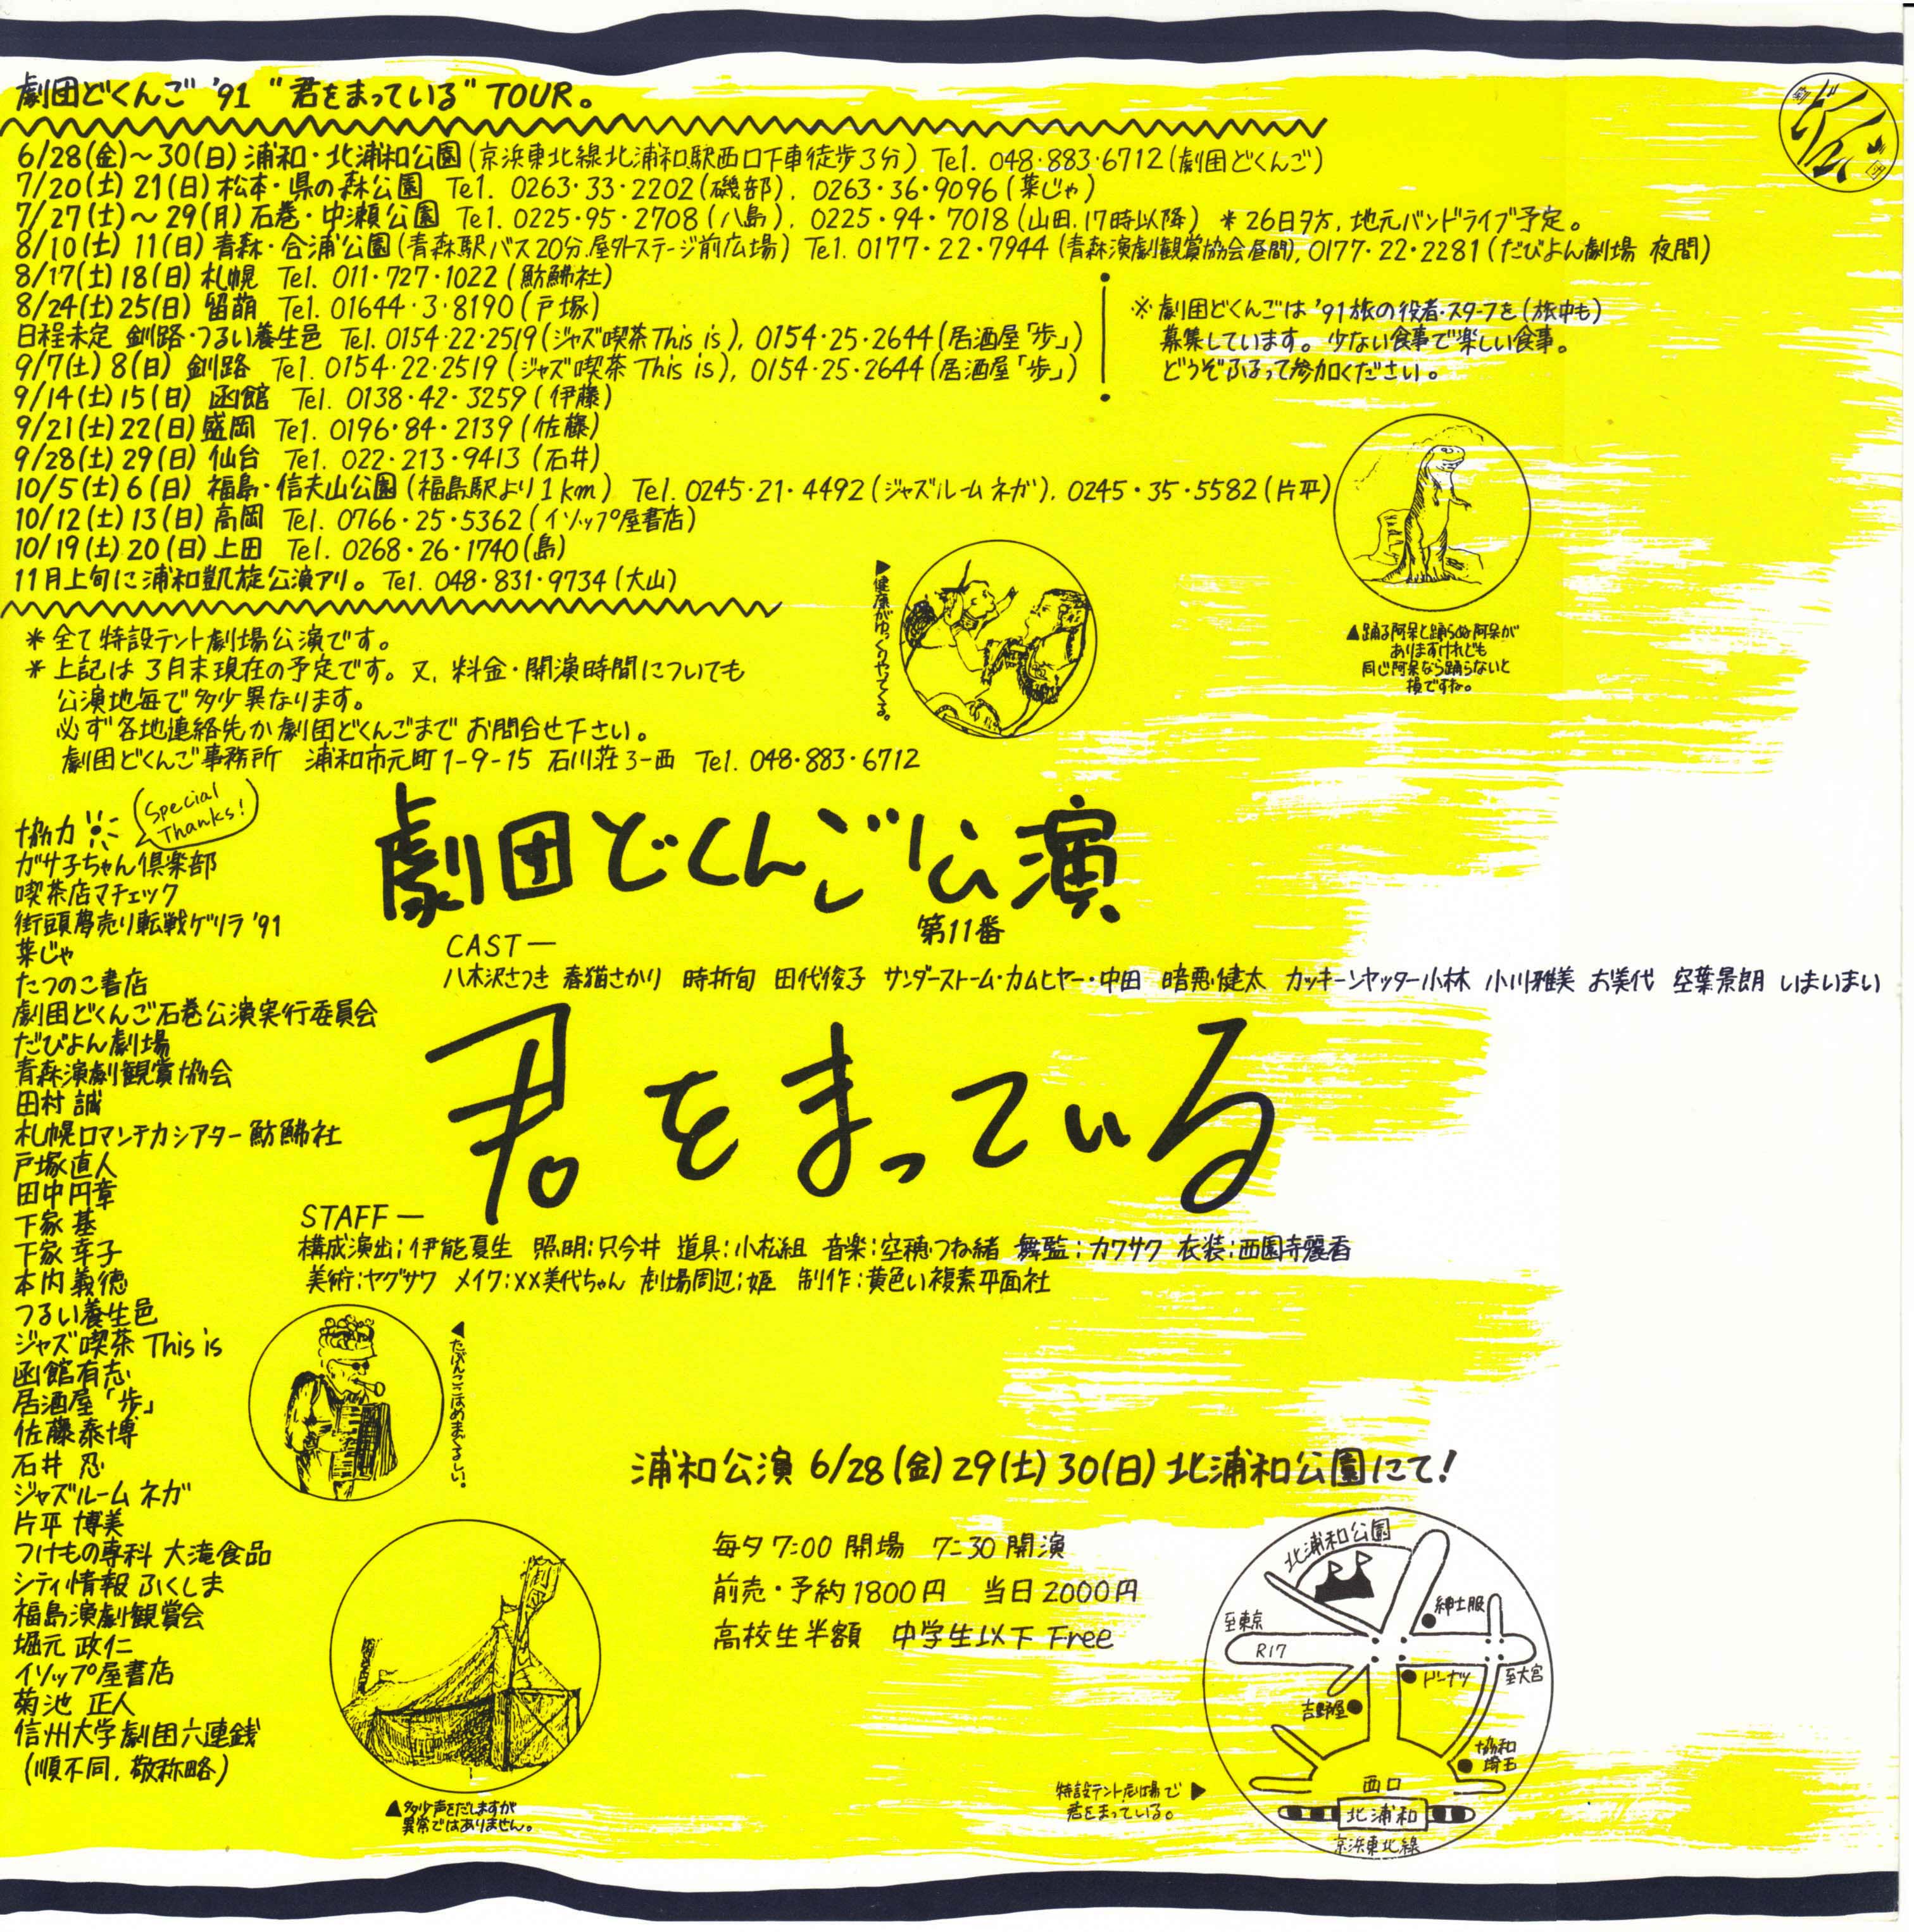 劇団どくんご '91 "君をまっている" TOUR。
6/28(金)~30(日) 浦和・北浦和公園(京浜東北線北浦和駅西口下車徒歩3分) Tel. 048・883・6712(劇団どくんご)
7/20(土) 21(日) 松本・県の森公園 Tel. 0263・33・2202(磯部), 0263・36・9096(葉じゃ)
7/27(土)~29(月) 石巻・中瀬公園 Tel. 0225・95・2708(八島), 0225・94・7018(山田.17時以降) *26日夕方、地元バンドライブ予定。
8/10(土) 11(日) 青森・合浦公園(青森駅バス20分.屋外ステージ前広場) Tel. 0177・22・7944(青森演劇観賞協会昼間), 0177・22・2281(だびよん劇場 夜間)
8/17(土) 18(日) 札幌 Tel. 011・727・1022(魴鮄社)
8/24(土) 25(日) 留萌 Tel. 01644・3・8190(戸塚)
日程未定 釧路・つるい養生邑 Tel. 0154・22・2519(ジャズ喫茶 This is), 0154・25・2644(居酒屋「歩」)
9/7(土) 8(日) 釧路 Tel. 0154・22・2519(ジャズ喫茶 This is), 0154・25・2644(居酒屋「歩」)
9/14(土) 15(日) 函館 Tel. 0138・42・3259(伊藤)
9/21(土) 22(日) 盛岡 Tel. 0196・84・2139(佐藤)
9/28(土) 29(日) 仙台 Tel. 022・213・9413(石井)
10/5(土) 6(日) 福島・信夫山公園(福島駅より1km) Tel. 0245・21・4492(ジャズルーム ネガ), 0245・35・5582(片平)
10/12(土) 13(日) 高岡 Tel. 0766・25・5362(イソップ屋書店)
10/19(土) 20(日) 上田 Tel. 0268・26・1740(島)
11月上旬に浦和凱旋公演アリ。 Tel. 048・831・9734(大山)
※劇団どくんごは '91旅の役者・スタッフを(旅中も)
募集しています。少ない食事で楽しい食事。
どうぞふるって参加ください。
▲踊る阿呆と踊らぬ阿呆が
ありますけれども
同じ阿呆なら踊らないと
損ですね。
▶健康がゆっくりやってくる。
*全て特設テント劇場公演です。
*上記は3月末現在の予定です。又、料金・開演時間についても
公演地毎で多少異なります。
必ず各地連絡先か劇団どくんごまでお問合せ下さい。
劇団どくんご事務所 浦和市元町1-9-15 石川荘3-西 Tel. 048・883・6712
協力
Special Thanks!
ガサ子ちゃん倶楽部
喫茶店マチェック
街頭夢売り転戦ゲリラ '91
葉じゃ
たつのこ書店
劇団どくんご石巻公演実行委員会
だびよん劇場
青森演劇観賞協会
田村 誠
札幌ロマンチカシアター魴鮄社
戸塚直人
田中円章
下家 基
下家 幸子
本内義徳
つるい養生邑
ジャズ喫茶 This is
函館有志
居酒屋「歩」
佐藤泰博
石井 忍
ジャズルーム ネガ
片平 博美
つけもの専科 大滝食品
シティ情報 ふくしま
福島演劇観賞会
堀元 政仁
イソップ屋書店
菊池 正人
信州大学劇団六連銭
(順不同、敬称略)
劇団どくんご公演
第11番
CAST—
八木沢さつき 春猫さかり 時折旬 田代俊子 サンダーストーム・カムヒヤー・中田 暗悪健太 カッキーンヤッター小林 小川雅美 お美代 空葉景朗 いまいまい
君をまっている
STAFF—
構成演出:伊能夏生 照明:只今井 道具:小松組 音楽:空穂つね緒 舞監:カワサク 衣装:西園寺麗香
美術:ヤグサワ メイク:XX美代ちゃん 劇場周辺:姫 制作:黄色い複素平面社
▲たぶんここはめまぐるしい。
▲多少声をだしますが
異常ではありません。
浦和公演 6/28(金) 29(土) 30(日) 北浦和公園にて!
毎夕 7:00 開場 7:30 開演
前売・予約 1800円 当日 2000円
高校生半額 中学生以下 Free
北浦和公園
紳士服
至東京
R17
ドーナツ
至大宮
吉野屋
協和
埼玉
西口
北浦和
京浜東北線
特設テント劇場で▶
君をまっている。